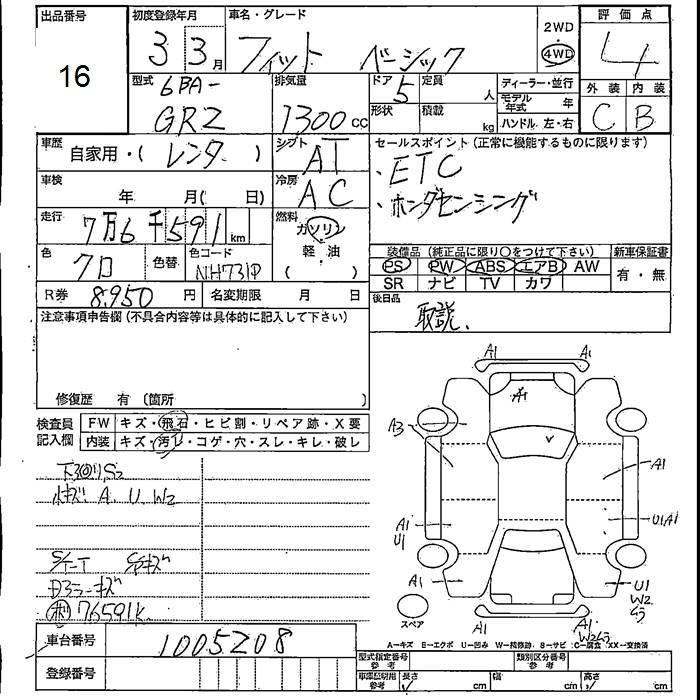 出品番号 初度登録年月 車名・グレード 2WD 4WD 評価点
16 3 3月 フィット ベーシック 4
型式 6BA- GR2 排気量 1300cc ドア 5 定員 人 ディーラー・並行 外装 内装
形状 積載 kg モデル年式 年 C B
ハンドル 左・右
車歴 自家用・(レンタ) シフト AT セールスポイント(正常に機能するものに限ります)
車検 年 月(日) 冷房 AC ・ETC
・ホンダセンシング
走行 7万6千591km 燃料 ガソリン
軽・油
( )
色 クロ 色替 色コード NH731P
装備品(純正品に限り○をつけて下さい) 新車保証書
PS PW ABS エアB AW 有・無
SR ナビ TV カワ
R券 8,950円 名変期限 月 日 後日品
取説.
注意事項申告欄(不具合内容等は具体的に記入して下さい)
修復歴 有(箇所
検査員 FW キズ・飛石・ヒビ割・リペア跡・X要
記入欄 内装 キズ・汚レ・コゲ・穴・スレ・キレ・破レ
A. U. W2
76591K
車台番号 1005208
登録番号
A1 A1
A1
A3
A1
A1 U1
U1A1
A1
U1
W2
A1
A1
スペア
A=キズ E=エクボ U=凹み W=補修跡 S=サビ C=腐食 XX=交換済
型式指定番号 参考 類別区分番号 参考
車庫証明用 参考 長さ cm 幅 cm 高さ cm